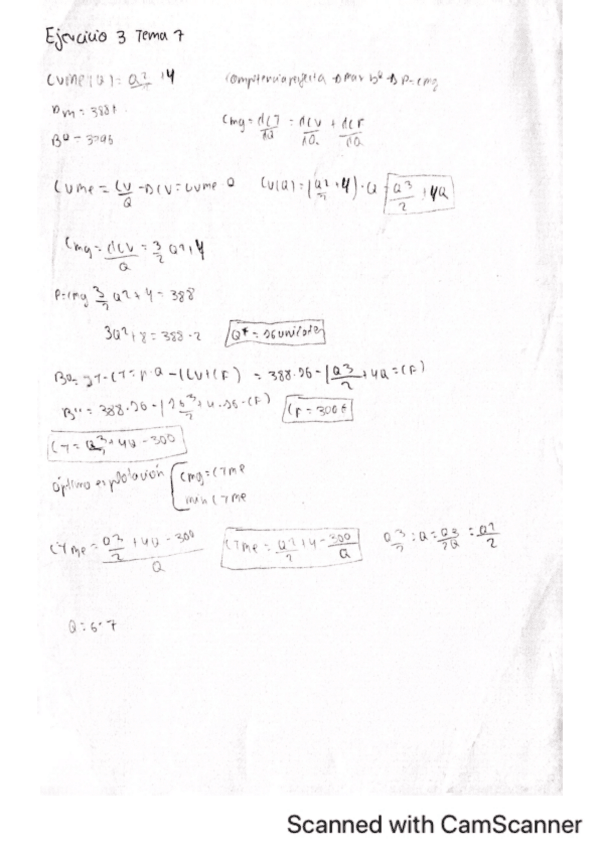 Ejercicio 3 Tema 7
CVMe(Q) = Q²/2 + 4 Competencia perfecta → max Bº → P=Cmg
Pm = 388€
Bº = 3796
Cmg = dCT/dQ = dCV/dQ + dCF/dQ
CVMe = CV/Q → CV = CVMe · Q CV(Q) = (Q²/2 + 4) · Q = Q³/2 + 4Q
Cmg = dCV/Q = 3/2 Q² + 4
P=Cmg 3/2 Q² + 4 = 388
3Q² + 8 = 388 · 2 Q* = 16 unidades
Bº = IT - CT = P · Q - (CV + CF) = 388 · 16 - (Q³/2 + 4Q = CF)
Bº = 388 · 16 - (16³/2 + 4 · 16 - CF) CF = 300€
CT = Q³/2 + 4Q - 300
óptimo explotación { Cmg = CTMe
min CTMe
CTMe = Q³/2 + 4Q - 300 / Q CTMe = Q²/2 + 4 - 300/Q Q³/2 : Q = Q³/2Q = Q²/2
Q = 6'7
Scanned with CamScanner